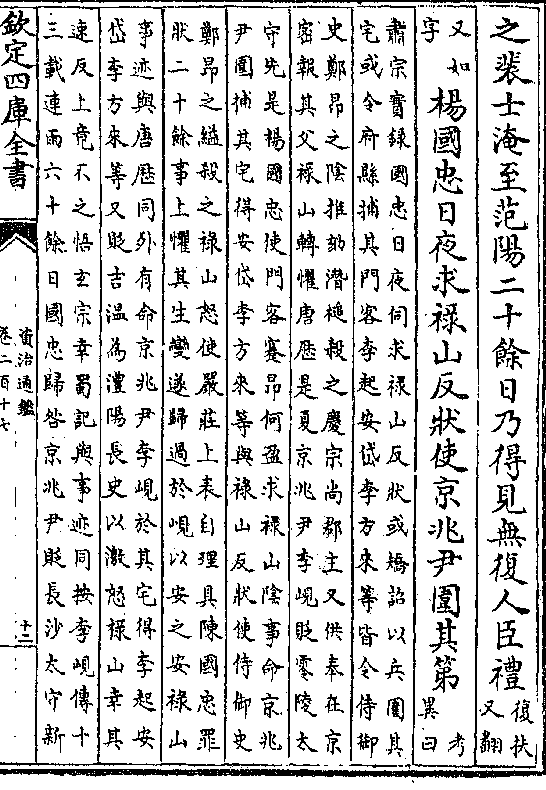 之裴士淹至范陽二十餘日乃得見無復人臣禮復扶
又翻
又如
字楊國忠日夜求祿山反狀使京兆尹圍其第考
異曰
肅宗實錄國忠日夜伺求祿山反狀或矯詔以兵圍其
宅或令府縣捕其門客李起安岱李方來等皆令侍御
史鄭昂之陰推劾潛槌殺之慶宗尚郡主又供奉在京
密報其父祿山轉懼唐歴是夏京兆尹李峴貶零陵太
守先是楊國忠使門客蹇昂何盈求祿山陰事命京兆
尹圍捕其宅得安岱李方來等與祿山反狀使侍御史
鄭昂之縊殺之祿山怒使嚴莊上表自理具陳國忠罪
狀二十餘事上懼其生變遂歸過於峴以安之安祿山
事迹與唐歴同外有命京兆尹李峴於其宅得李起安
岱李方來等又貶吉温為澧陽長史以激怒祿山幸其
速反上竟不之悟玄宗幸蜀記與事迹同按李峴傳十
三載連雨六十餘日國忠歸咎京兆尹貶長沙太守新
欽定四庫全書
資治通鑑
卷二百十七
十二